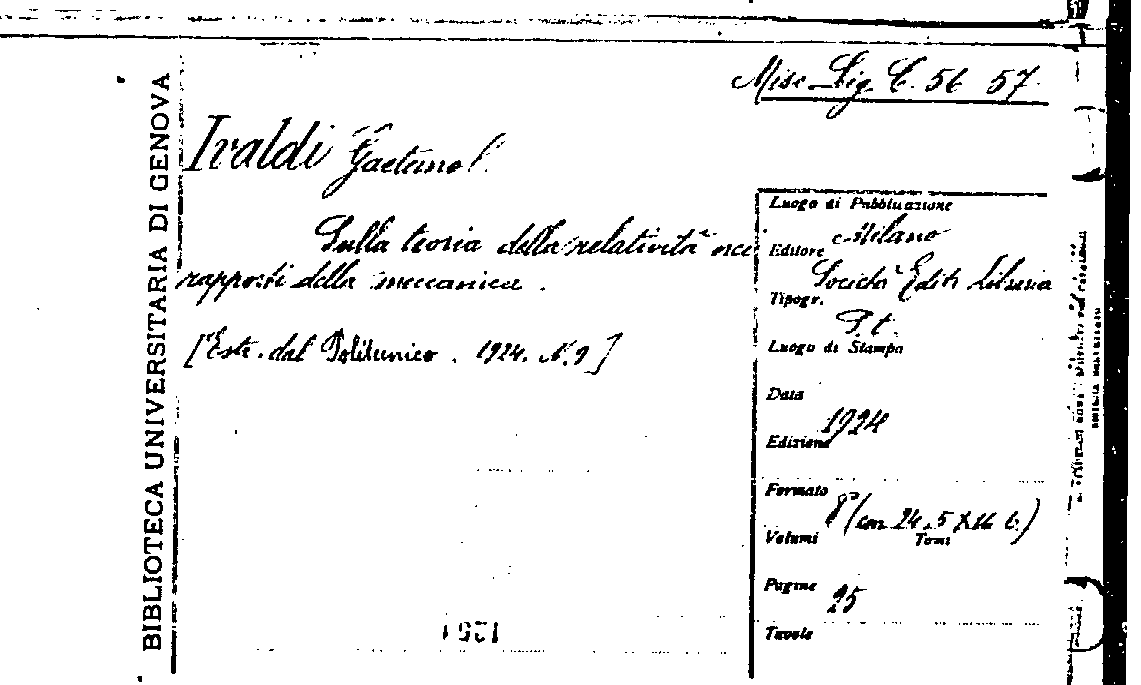 Misc. Lig. C. 56 57.
BIBLIOTECA UNIVERSITARIA DI GENOVA
Ivaldi Gaetano
Sulla teoria della relatività nei
rapposti della meccanica.
[Estr. dal Politecnico. 1924. N. 9]
Luogo di Pubblicazione
Milano
Editore
Società Editr. Libraria
Tipogr.
P. t.
Luogo di Stampa
Data
1924
Edizione
Formato
8° (cm 24.5 X
Volumi Tomi
Pagine
25
Tavole